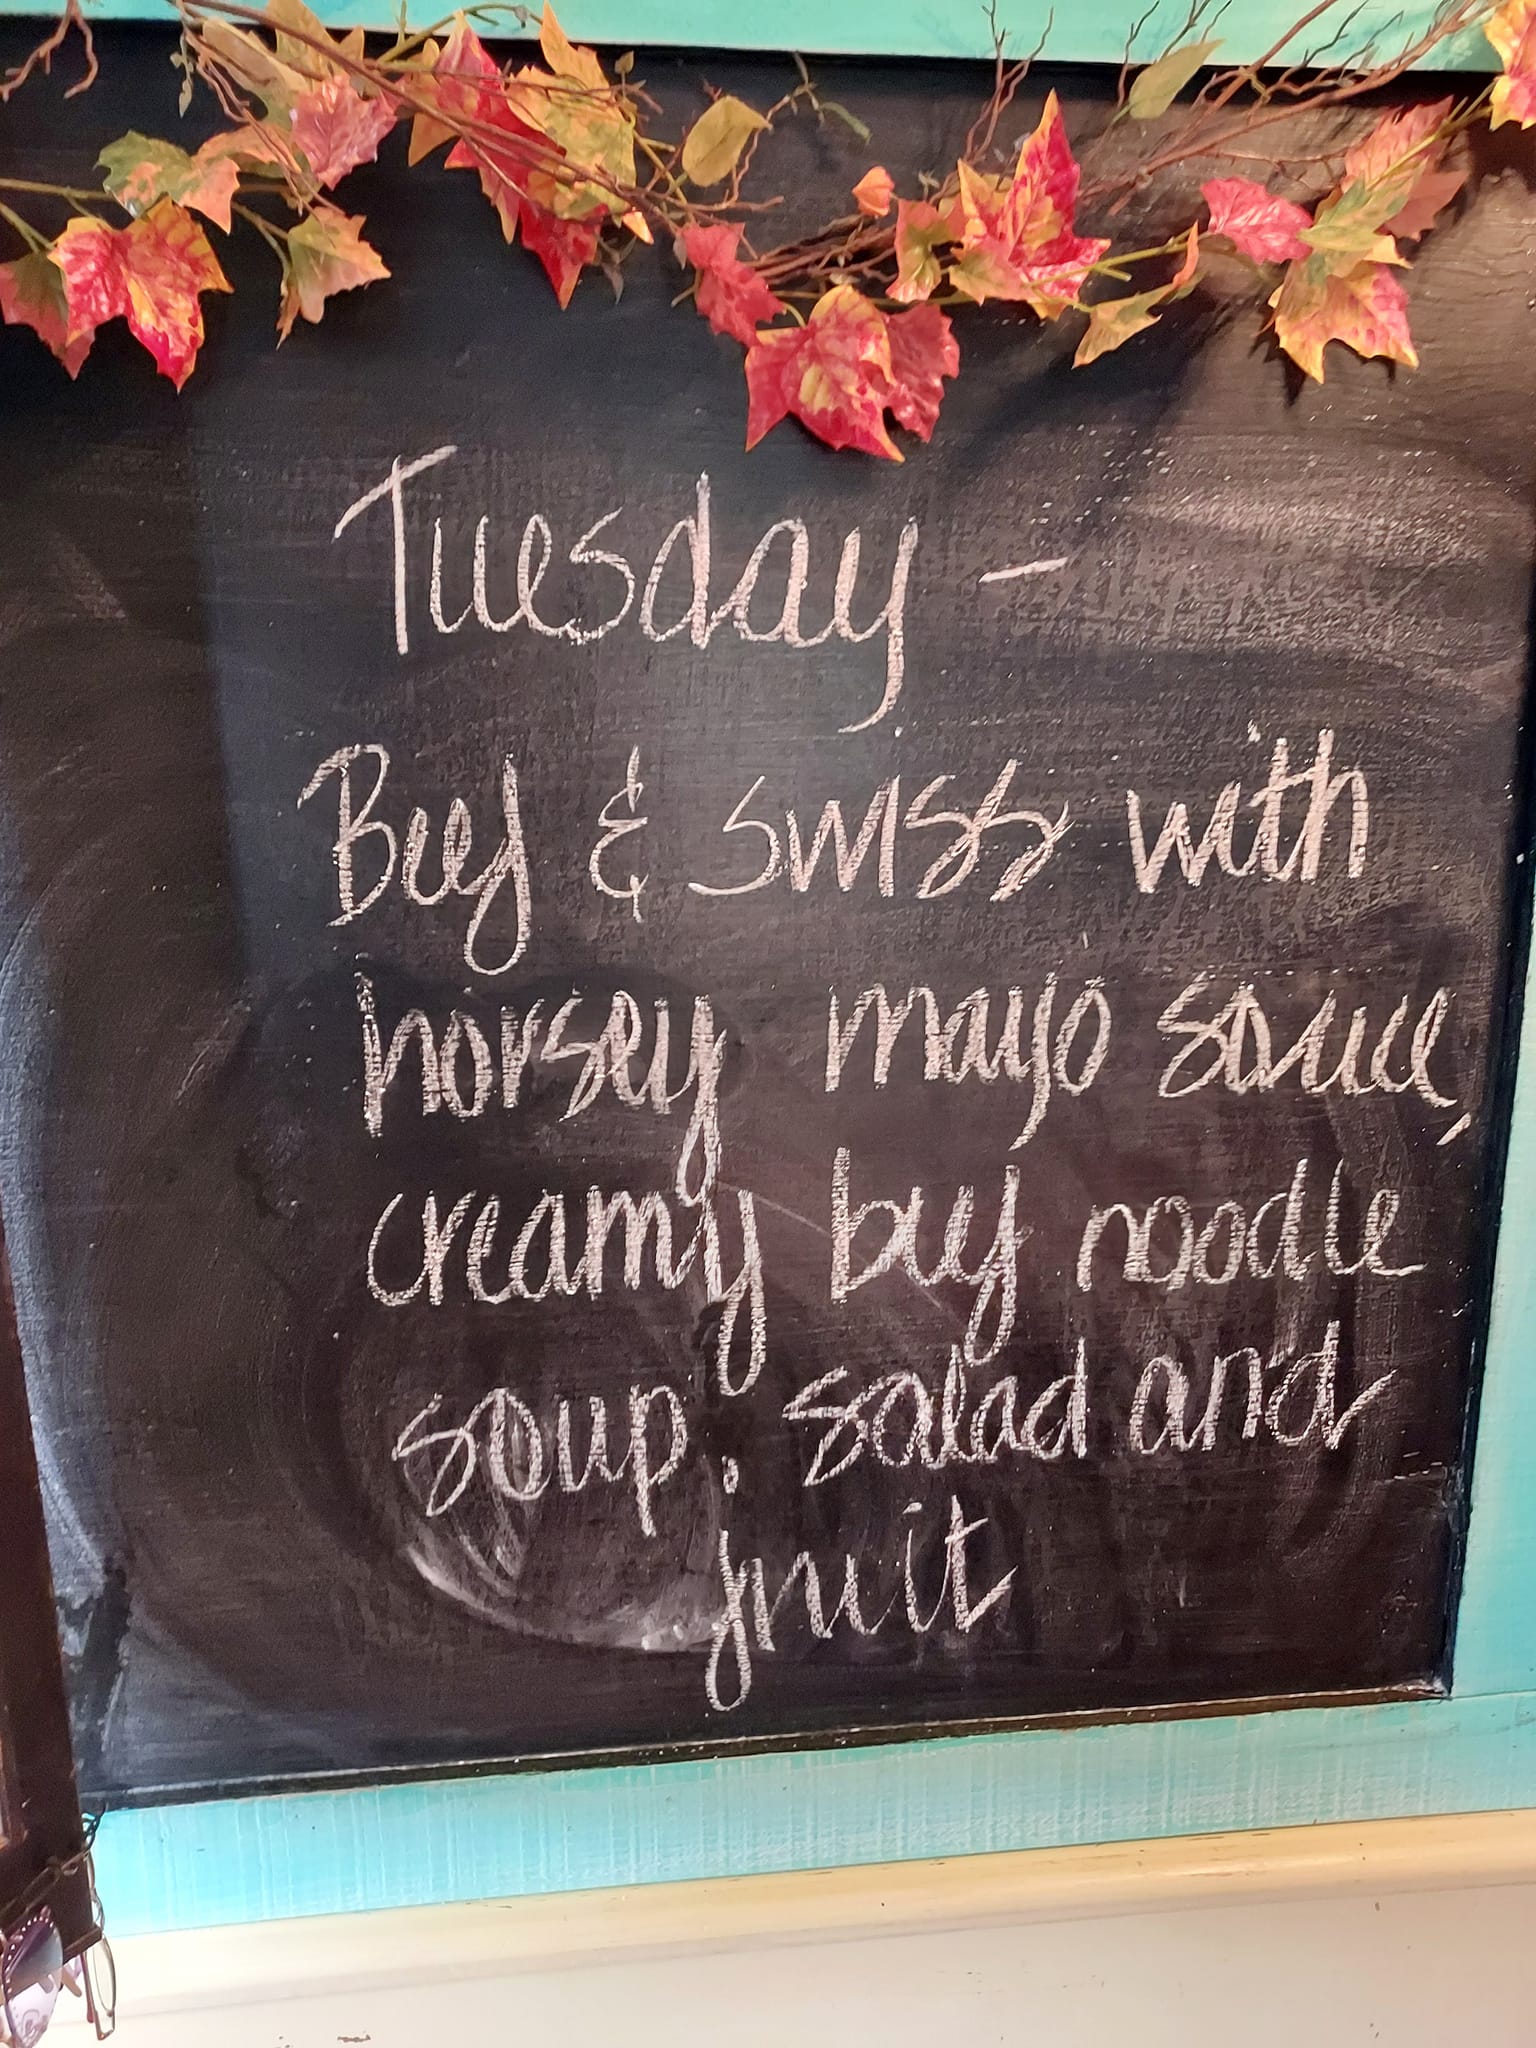 Tuesday -
Beef & swiss with
horsey mayo sauce,
creamy beef noodle
soup. salad and
fruit